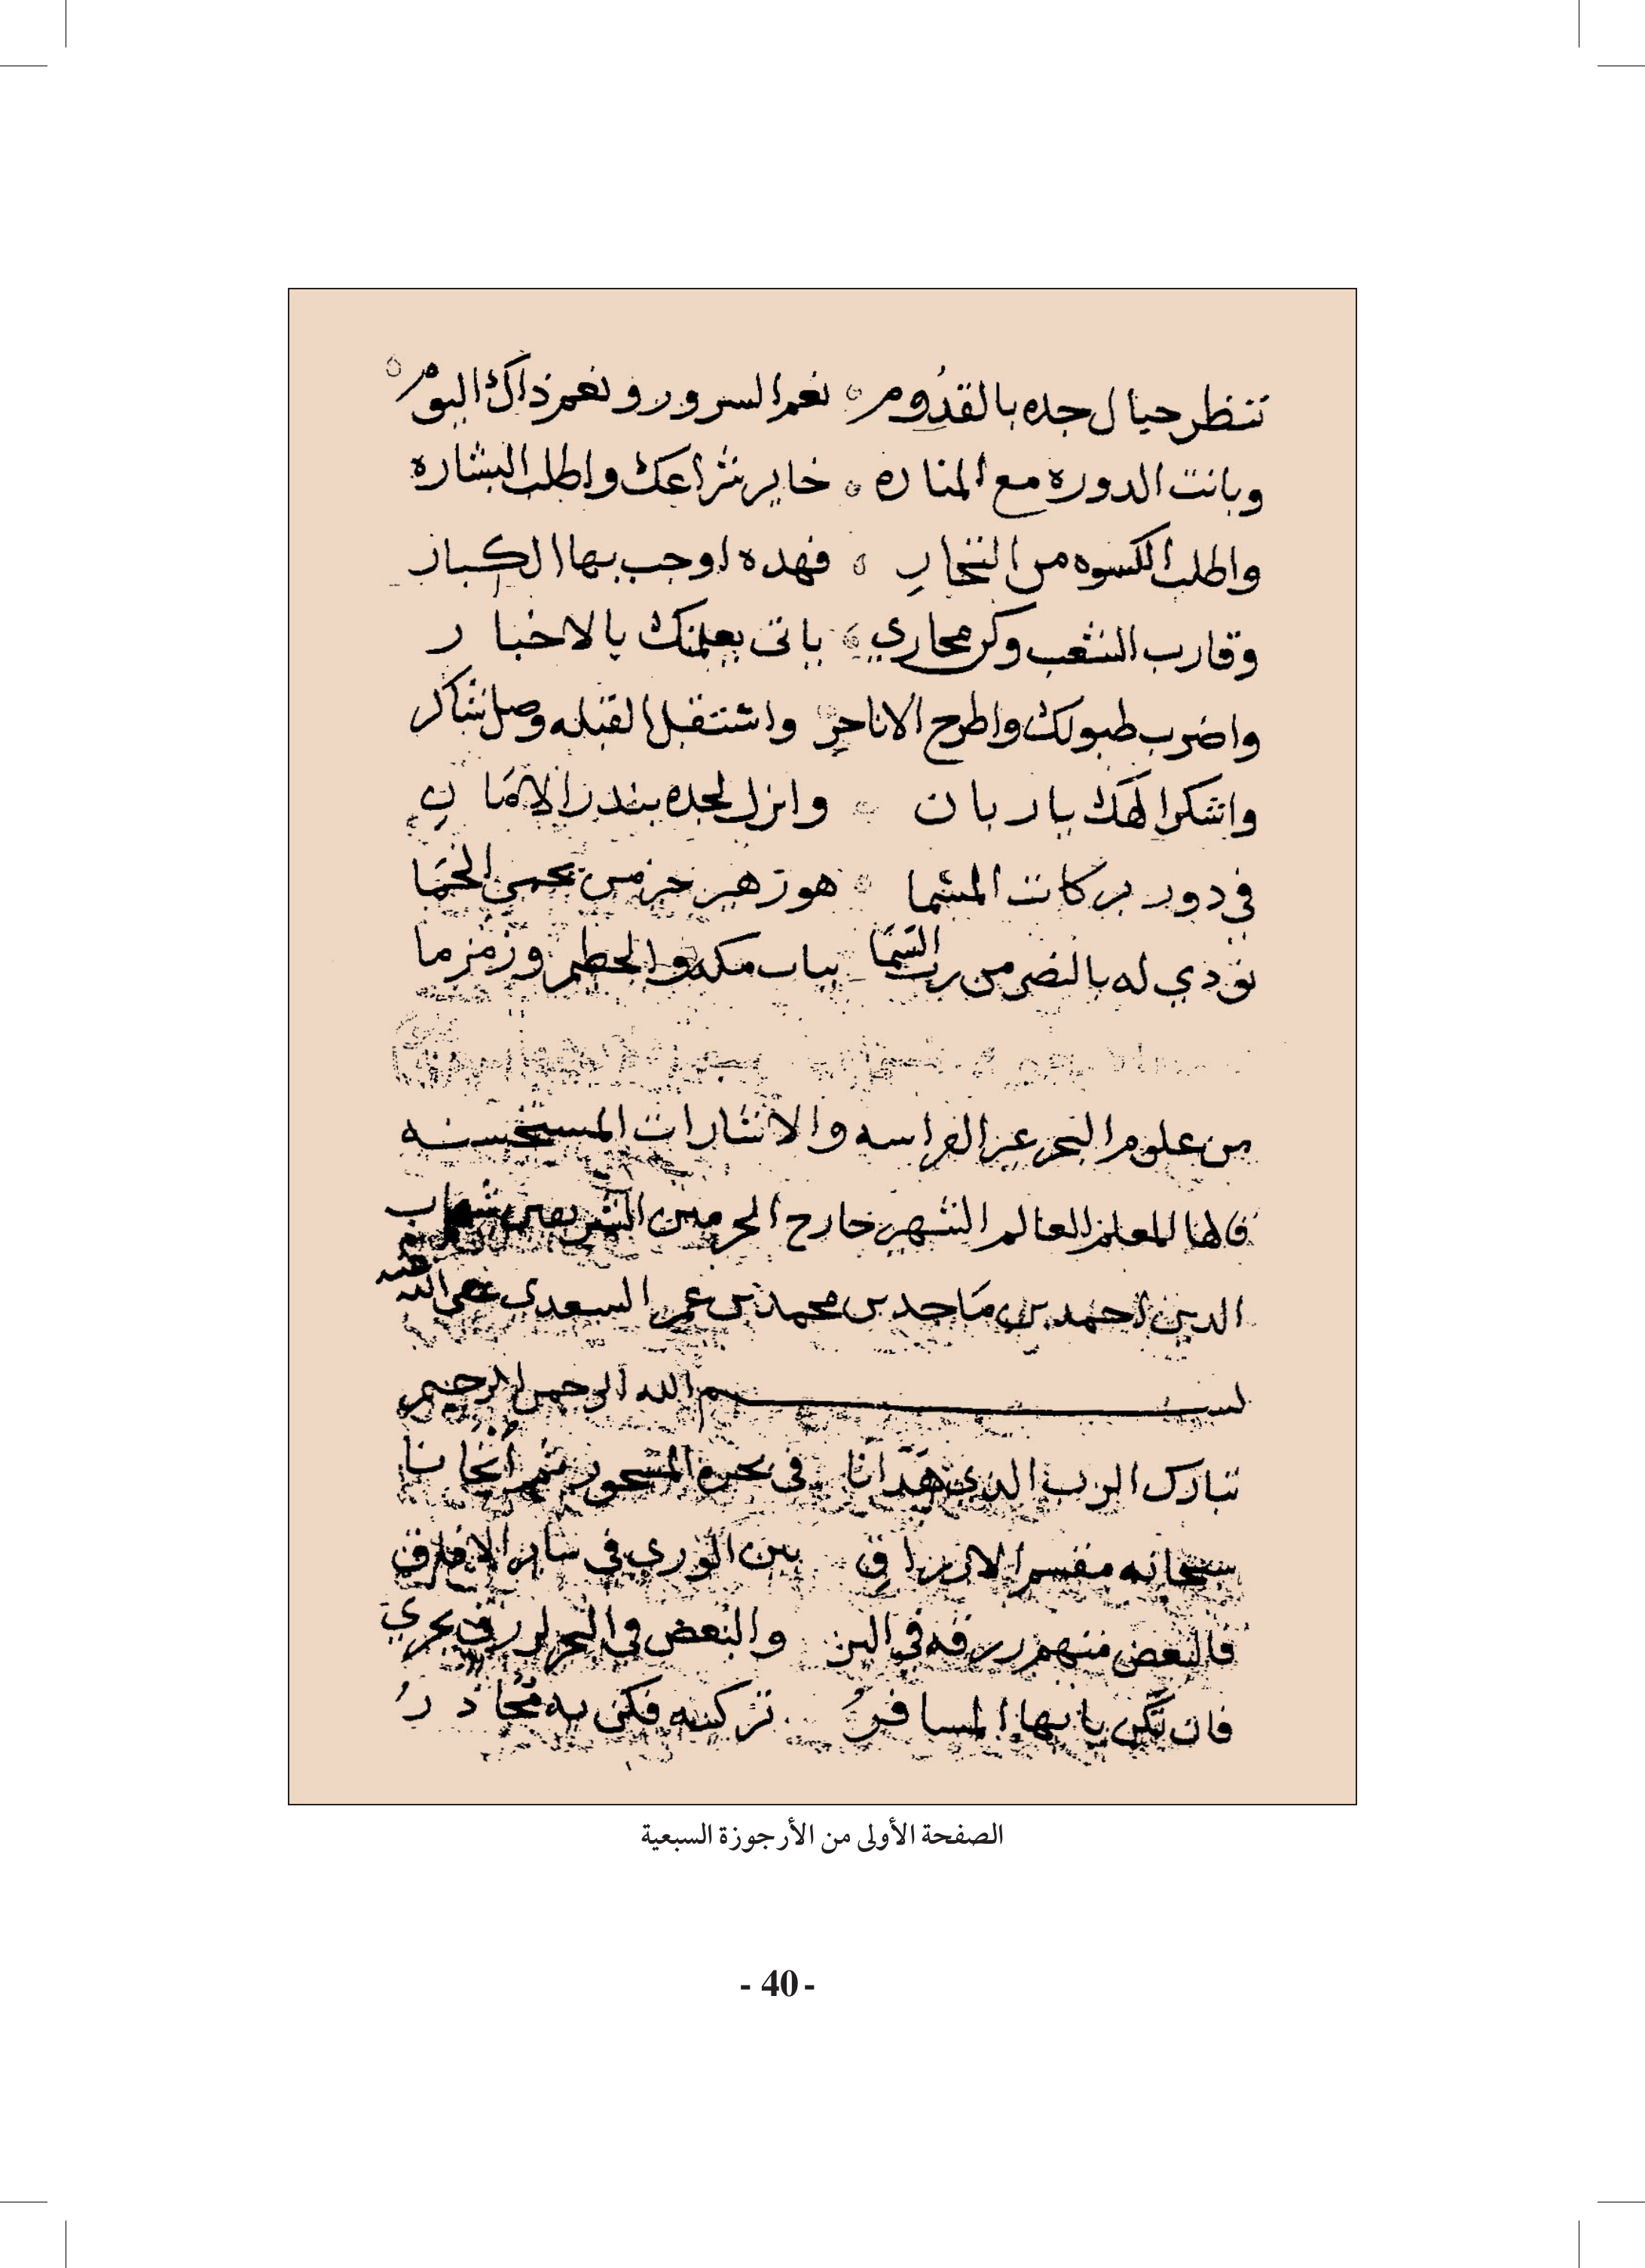 تنظر حبال جده بالقدوم نعم السرور ونعم ذاك اليوم
وبانت الدوره مع المناره خاير شراعك واطلب البشاره
واطلب الكسوه من التجار فهده اوجب بها الكبار
وقارب الشعب وكن مجاري ياتى يعلمنك بالاخبار
واضرب طبولك واطرح الاناجر واستقبل القبله وصل شاكر
واشكر الهك ياربان وانزل لجده بندر الامان
في دور بركات المسما هو زهير خير من يحمى الحما
نودي له بالنصر من رب السما بباب مكه والحطيم وزمزما
من علوم البحر غير الفراسه والاشارات المستحسنه
قالها المعلم العالم الشهير خارج الحرمين الشريفين شهاب
الدين احمد بن ماجد بن محمد بن عمر السعدى عفى الله عنه
بسم الله الرحمن الرحيم
تبارك الرب الدي هدانا فى بحره المسجور ثم انجانا
سبحانه مقسم الارزاق بين الورى فى ساير الافاق
فالبعض منهم رزقه في البر والبعض في البحر لرزق يجري
فان تكن يا يها المسافر تركبه فكن به محاذر
الصفحة الأولى من الأرجوزة السبعية
- 40 -